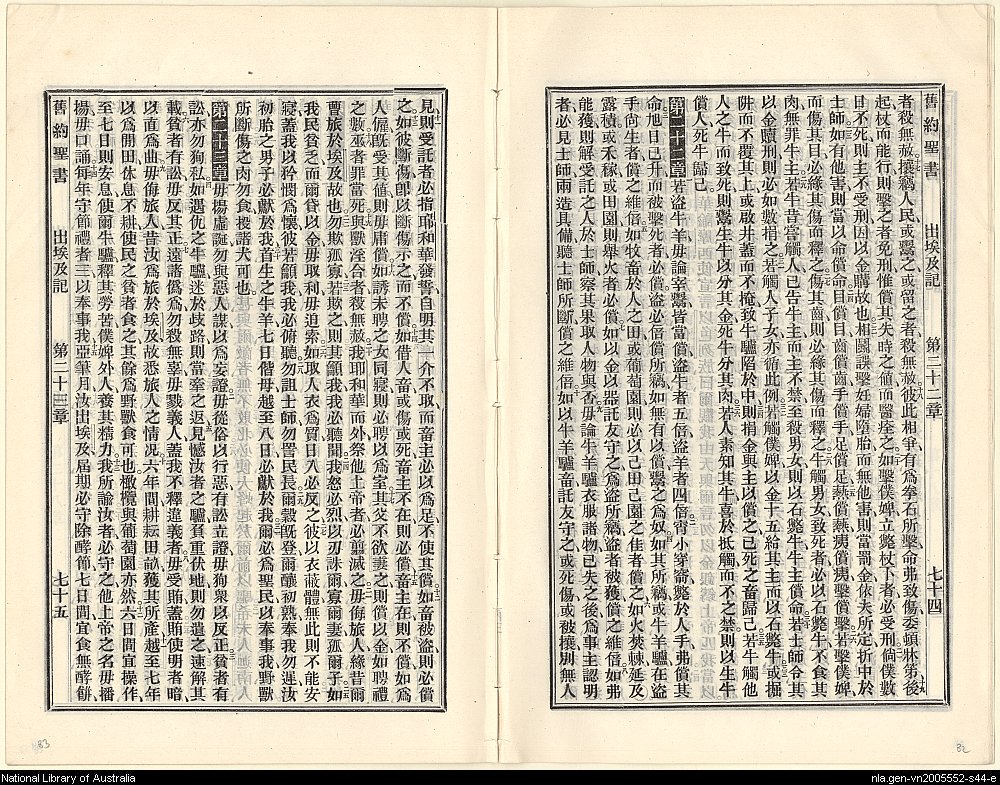 舊約聖書 出埃及記 第二十二章 七十四
者殺無赦攘竊人民或鬻之或留之者殺無赦彼此相爭有爲拳石所擊命弗致傷委頓牀笫後
起杖而能行則擊之者免刑惟償其失時之値而醫痊之如擊僕婢立斃杖下者必受刑倘僕數
日不死則主不受刑因以金購故也相鬬誤擊妊婦墮胎而無他害則當罰金依夫所定折中於
士師如有他害則當以命償命目償目齒償齒手償手足償足爇償爇痍償痍擊償擊若擊僕婢
而傷其目必緣其傷而釋之傷其齒則必緣其傷而釋之牛觸男女致死者必以石斃牛不食其
肉無罪牛主若牛昔常觸人已告牛主而主不禁至殺男女則以石斃牛牛主償命若士師令其
以金贖刑則必如數捐之若觸人子女亦循此例若觸僕婢以金十五給其主而以石斃牛或掘
阱而不覆其上或啟井蓋而不掩致牛驢陷於中則捐金與主以償之已死之畜歸己若牛觸他
人之牛而致死則鬻生牛以分其金死牛分其肉若人素知其牛喜於抵觸而不之禁則以生牛
償人死牛歸己
第二十二章若盜牛羊毋論宰鬻皆當償盜牛者五倍盜羊者四倍宵小穿窬斃於人手弗償其
命旭日已升而被擊死者必償盜必倍償所竊如無有以償鬻之爲奴如其所竊或牛羊驢在盜
手尚生者償之維倍如牧畜於人之田或葡萄園則必以己田己園之佳者償之如火焚棘延及
露積或禾稼或田園則舉火者必償如以金以器託友守之爲盜所竊盜者被獲償之維倍如弗
能獲則解受託之人於士師察其果取人物與否毋論牛羊驢衣服諸物已失之後爲事主認明
者必見士師兩造具備聽士師所斷償之維倍如以牛羊驢畜託友守之或死傷或被攘別無人
82
見則受託者必指耶和華發誓自明其一介不取而畜主必以爲足不使其償如畜被盜則必償
之如彼斷傷卽以斷傷示之而不償如借人畜或傷或死畜主不在則必償畜主在則不償如爲
人僱旣受其値則毋庸償如誘未聘之女同寢則必聘以爲室其父不欲妻之則償以金如聘禮
之數巫者罪當死與獸淫合者殺無赦我耶和華而外祭他上帝者必翦滅之毋侮旅人緣昔爾
曹旅於埃及故也勿欺孤寡若欺之則其籲我我必聽聞我怒必烈以刃誅爾寡爾妻孤爾子如
我民貧乏而爾貸以金勿取利毋迫索如取人衣爲質日入必反之彼以衣蔽體無此則不能安
寢蓋我以矜憫爲懷彼若籲我我必俯聽勿詛士師勿詈民長爾穀旣登爾釀初熟奉我勿遲汝
初胎之男子必獻於我首生之牛羊七日偕母越至八日必獻於我爾必爲聖民以奉事我野獸
所斷傷之肉勿食投諸犬可也
第二十三章毋揚虛誕勿與惡人謀以爲妄證毋從俗以行惡有訟立證毋狥衆以反正貧者有
訟亦勿狥私如遇仇之牛驢迷於歧路則當牽之返見憾汝者之驢負重伏地則勿遺之速解其
載貧者有訟毋反其正遠諸僞爲勿殺無辜毋戮義人蓋我不釋違義者毋受賄蓋賄使明者暗
以直爲曲毋侮旅人昔汝爲旅於埃及故悉旅人之情况六年間耕耘田畝獲其所產越至七年
以爲閒田休息不耕使民之貧者食之其餘爲野獸食可也橄欖與葡萄園亦然六日間宜操作
至七日則安息使爾牛驢釋其勞苦僕婢外人養其精力我所諭汝者必守之他上帝之名毋播
揚毋口誦每年守節禮者三以奉事我亞筆月汝出埃及屆期必守除酵節七日間宜食無酵餅
舊約聖書 出埃及記 第二十三章 七十五
83
National Library of Australia
nla.gen-vn2005552-s44-e